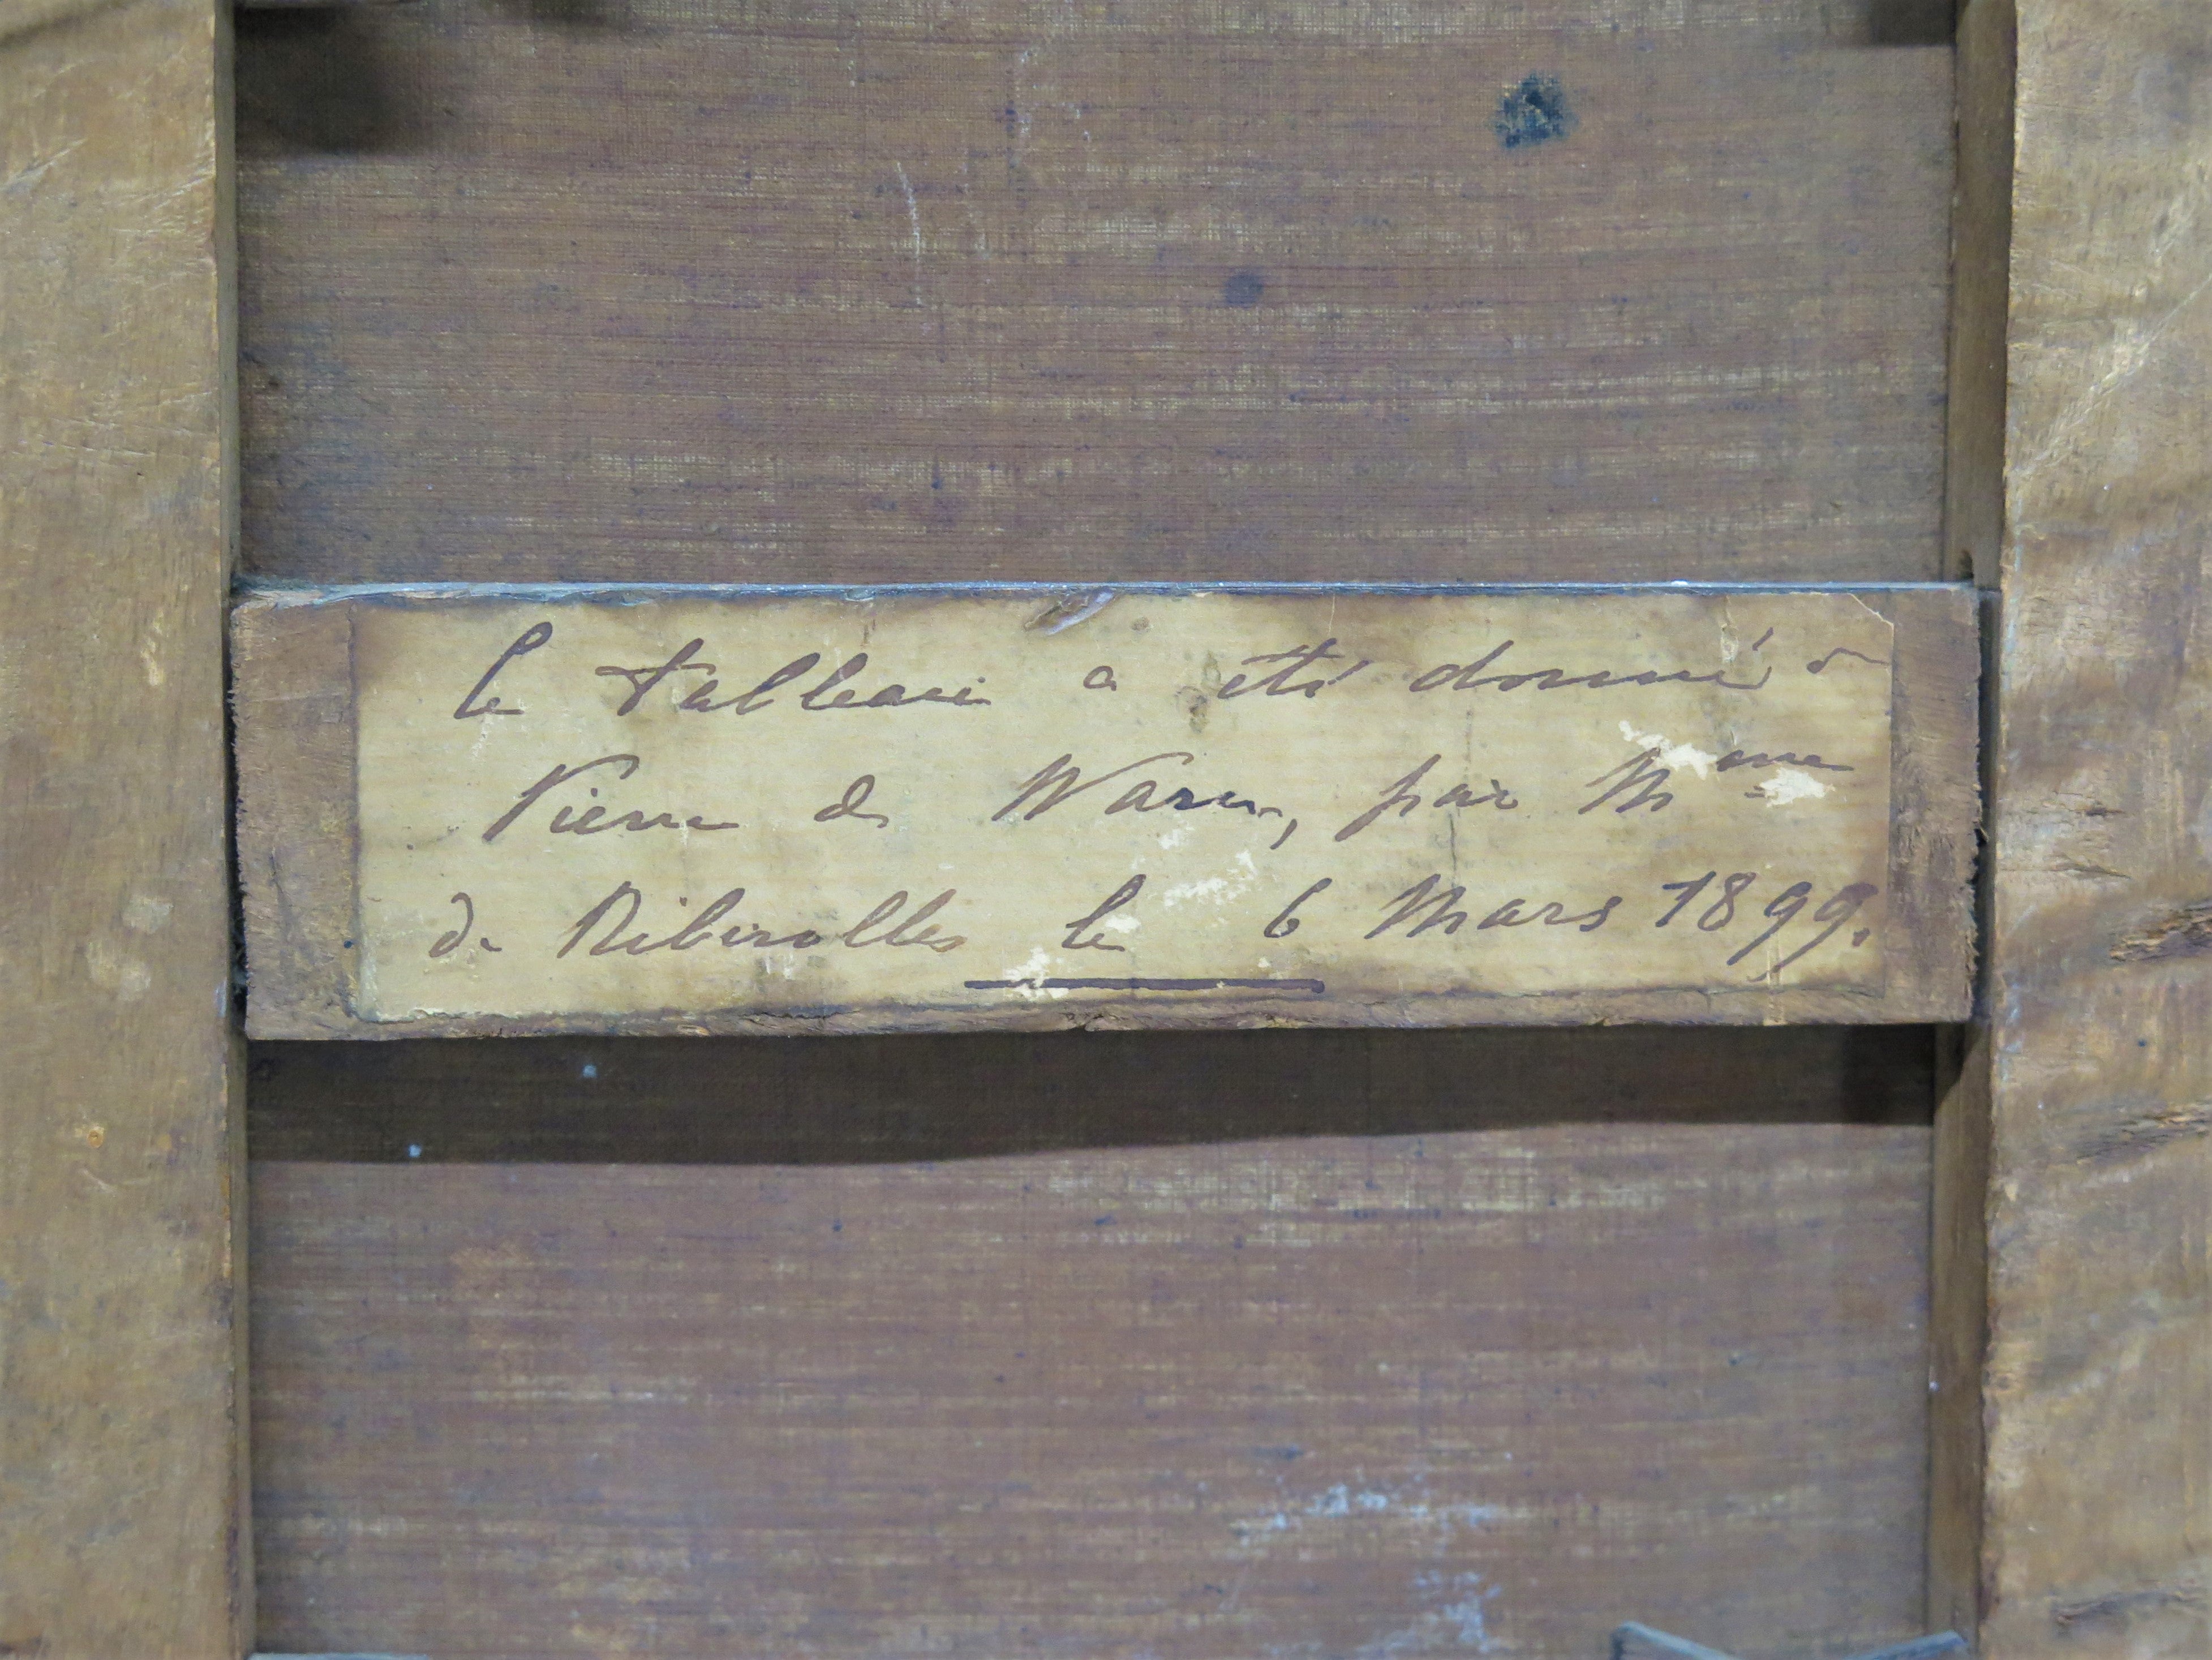 Ce tableau a été donné à
Pierre de Waru, par Mme
de Riberolles le 6 Mars 1899.